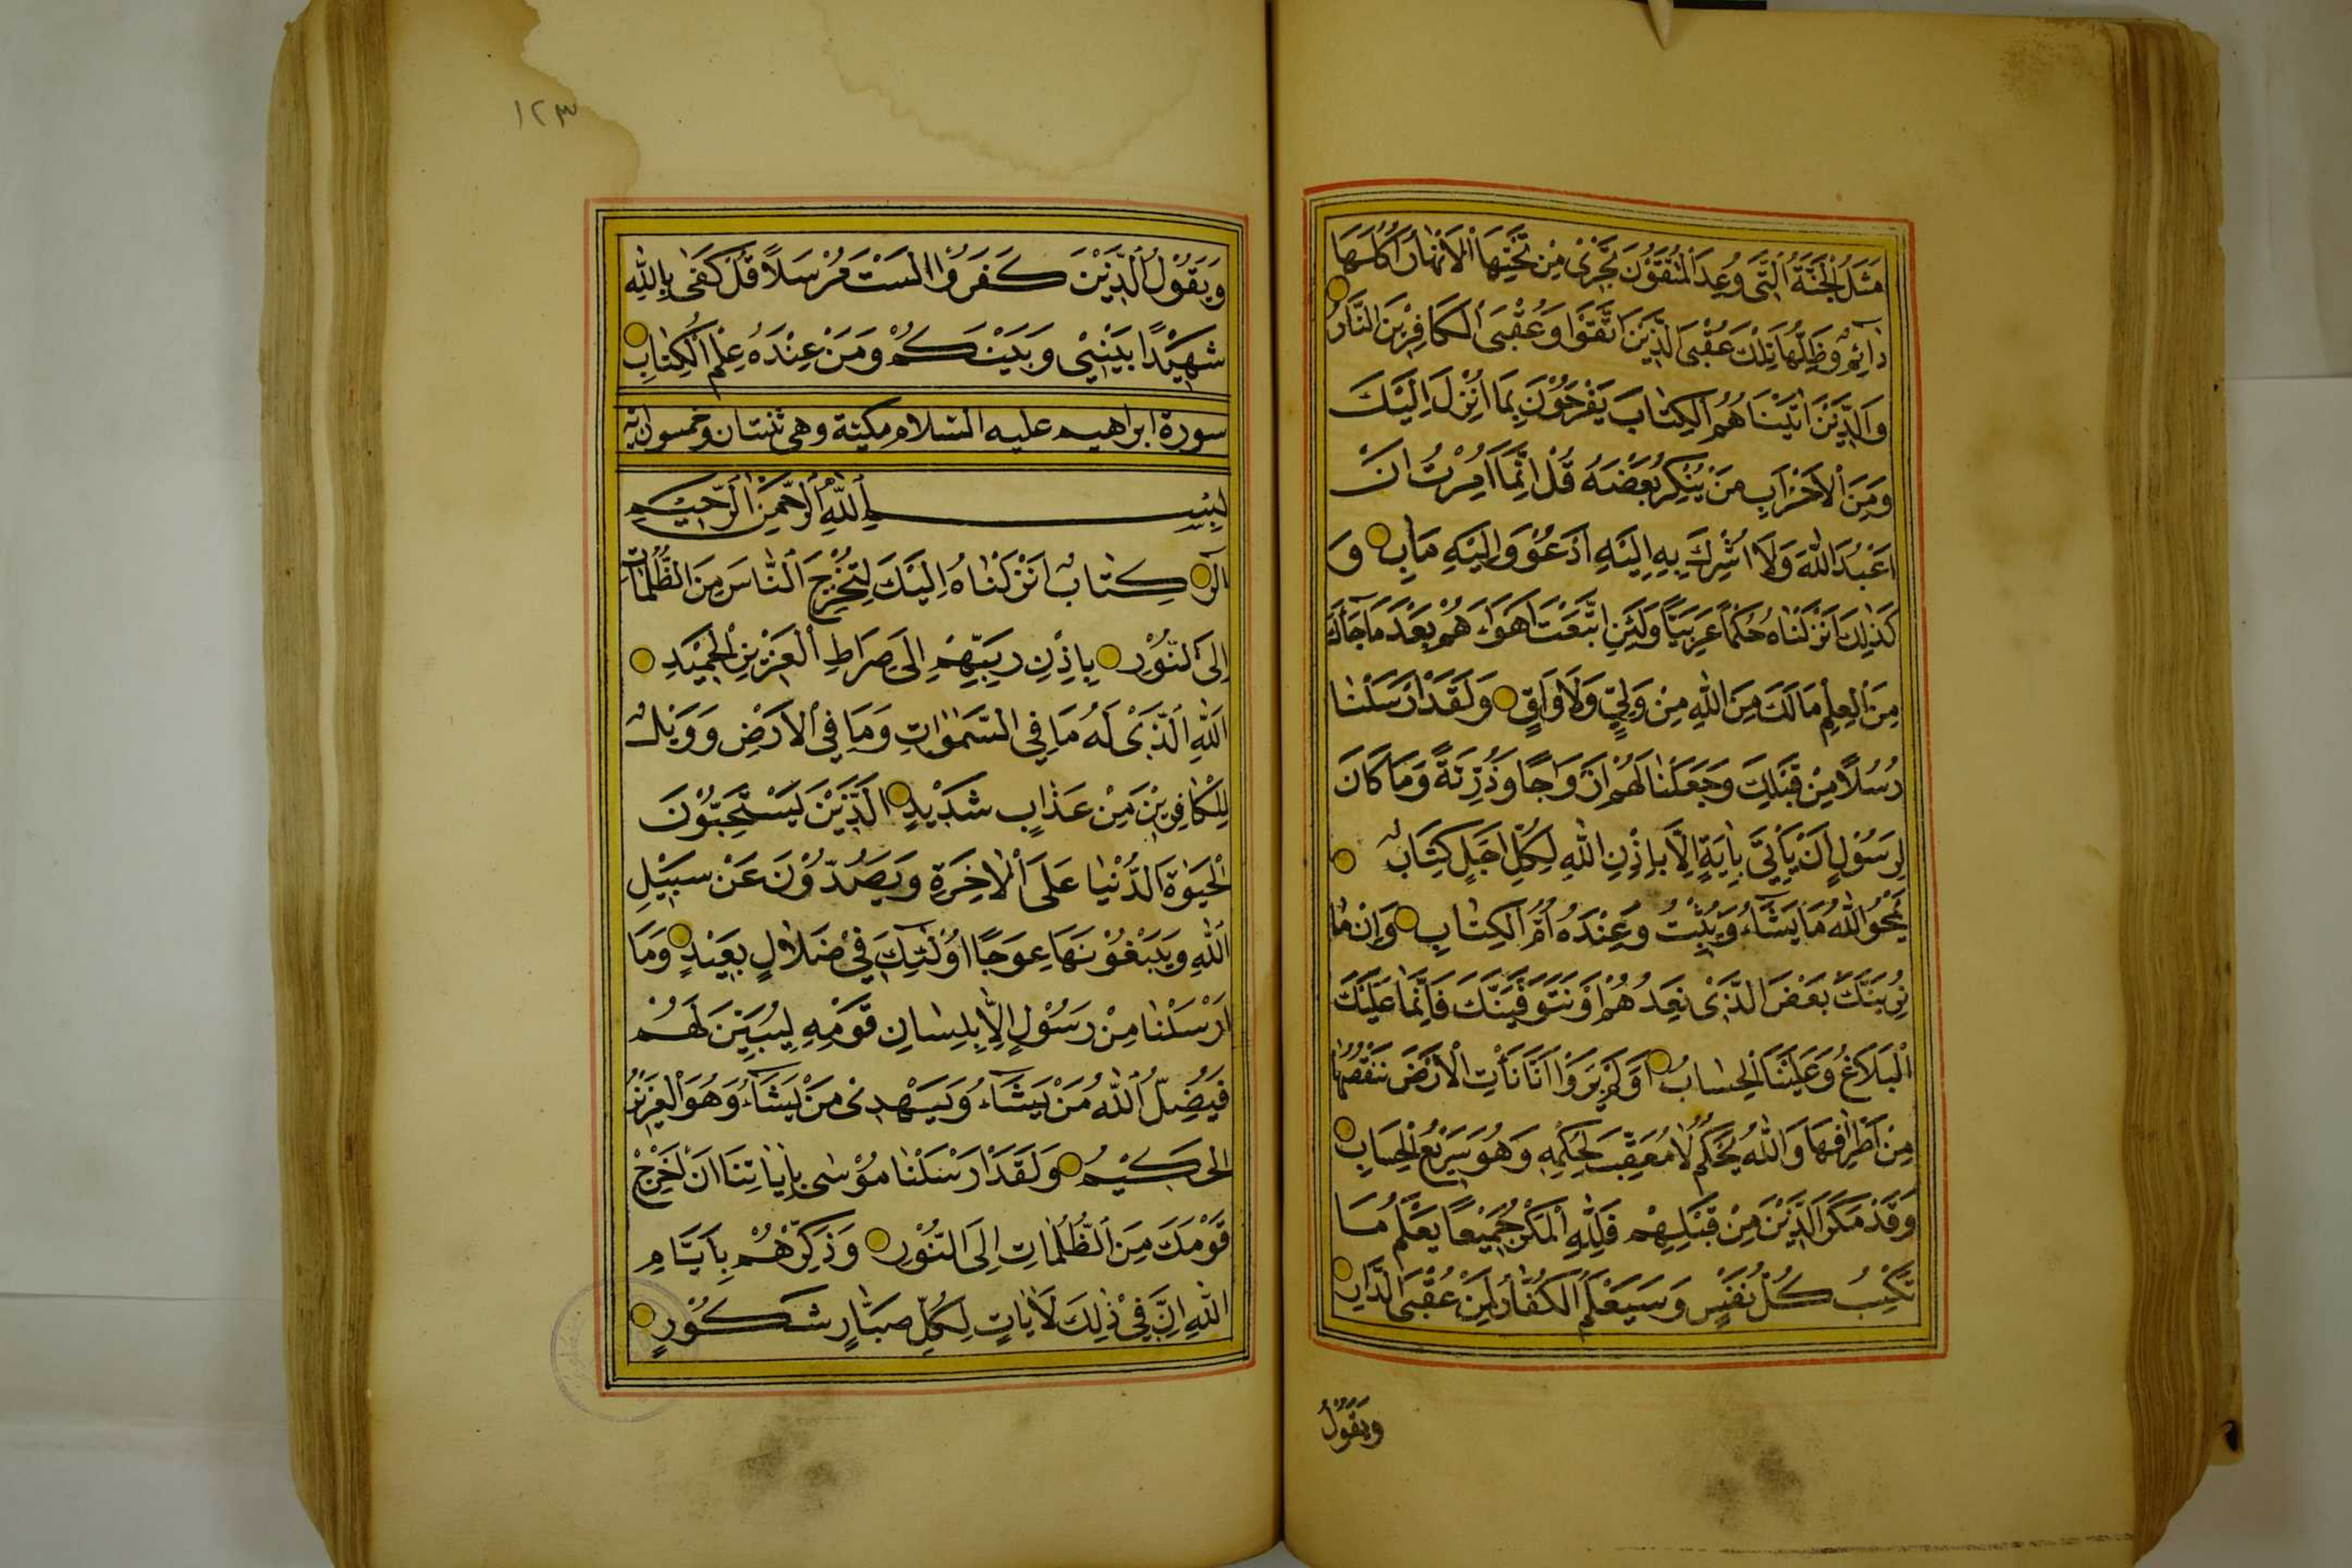 مَثَلُ الْجَنَّةِ الَّتِي وُعِدَ الْمُتَّقُونَ تَجْرِي مِنْ تَحْتِهَا الْاَنْهَارُ اُكُلُهَا
دَائِمٌ وَظِلُّهَا تِلْكَ عُقْبَى الَّذِينَ اتَّقَوْا وَعُقْبَى الْكَافِرِينَ النَّارُ
وَالَّذِينَ اٰتَيْنَاهُمُ الْكِتَابَ يَفْرَحُونَ بِمَا اُنْزِلَ اِلَيْكَ
وَمِنَ الْاَحْزَابِ مَنْ يُنْكِرُ بَعْضَهُ قُلْ اِنَّمَا اُمِرْتُ اَنْ
اَعْبُدَ اللّٰهَ وَلَا اُشْرِكَ بِهِ اِلَيْهِ اَدْعُوْ وَاِلَيْهِ مَاٰبِ وَ
كَذٰلِكَ اَنْزَلْنَاهُ حُكْمًا عَرَبِيًّا وَلَئِنِ اتَّبَعْتَ اَهْوَاءَهُمْ بَعْدَ مَا جَاءَكَ
مِنَ الْعِلْمِ مَا لَكَ مِنَ اللّٰهِ مِنْ وَلِيٍّ وَلَا وَاقٍ وَلَقَدْ اَرْسَلْنَا
رُسُلًا مِنْ قَبْلِكَ وَجَعَلْنَا لَهُمْ اَزْوَاجًا وَذُرِّيَّةً وَمَا كَانَ
لِرَسُولٍ اَنْ يَأْتِيَ بِاٰيَةٍ اِلَّا بِاِذْنِ اللّٰهِ لِكُلِّ اَجَلٍ كِتَابٌ
يَمْحُو اللّٰهُ مَا يَشَاءُ وَيُثْبِتُ وَعِنْدَهُ اُمُّ الْكِتَابِ وَاِنْ مَا
نُرِيَنَّكَ بَعْضَ الَّذِي نَعِدُهُمْ اَوْ نَتَوَفَّيَنَّكَ فَاِنَّمَا عَلَيْكَ
الْبَلَاغُ وَعَلَيْنَا الْحِسَابُ اَوَلَمْ يَرَوْا اَنَّا نَأْتِ الْاَرْضَ نَنْقُصُهَا
مِنْ اَطْرَافِهَا وَاللّٰهُ يَحْكُمُ لَا مُعَقِّبَ لِحُكْمِهِ وَهُوَ سَرِيعُ الْحِسَابِ
وَقَدْ مَكَرَ الَّذِينَ مِنْ قَبْلِهِمْ فَلِلّٰهِ الْمَكْرُ جَمِيعًا يَعْلَمُ مَا
تَكْسِبُ كُلُّ نَفْسٍ وَسَيَعْلَمُ الْكُفَّارُ لِمَنْ عُقْبَى الدَّارِ
وَيَقُولُ
١٢٣
وَيَقُولُ الَّذِينَ كَفَرُوا لَسْتَ مُرْسَلًا قُلْ كَفٰى بِاللّٰهِ
شَهِيدًا بَيْنِي وَبَيْنَكُمْ وَمَنْ عِنْدَهُ عِلْمُ الْكِتَابِ
سورة ابراهيم عليه السلام مكية وهي ثنتان وخمسون اية
بِسْمِ اللّٰهِ الرَّحْمٰنِ الرَّحِيمِ
الٓرٰ كِتَابٌ اَنْزَلْنَاهُ اِلَيْكَ لِتُخْرِجَ النَّاسَ مِنَ الظُّلُمَاتِ
اِلَى النُّورِ بِاِذْنِ رَبِّهِمْ اِلٰى صِرَاطِ الْعَزِيزِ الْحَمِيدِ
اَللّٰهِ الَّذِي لَهُ مَا فِي السَّمٰوَاتِ وَمَا فِي الْاَرْضِ وَوَيْلٌ
لِلْكَافِرِينَ مِنْ عَذَابٍ شَدِيدٍ الَّذِينَ يَسْتَحِبُّونَ
الْحَيٰوةَ الدُّنْيَا عَلَى الْاٰخِرَةِ وَيَصُدُّونَ عَنْ سَبِيلِ
اللّٰهِ وَيَبْغُونَهَا عِوَجًا اُولٰئِكَ فِي ضَلَالٍ بَعِيدٍ وَمَا
اَرْسَلْنَا مِنْ رَسُولٍ اِلَّا بِلِسَانِ قَوْمِهِ لِيُبَيِّنَ لَهُمْ
فَيُضِلُّ اللّٰهُ مَنْ يَشَاءُ وَيَهْدِي مَنْ يَشَاءُ وَهُوَ الْعَزِيزُ
الْحَكِيمُ وَلَقَدْ اَرْسَلْنَا مُوسٰى بِاٰيَاتِنَا اَنْ اَخْرِجْ
قَوْمَكَ مِنَ الظُّلُمَاتِ اِلَى النُّورِ وَذَكِّرْهُمْ بِاَيَّامِ
اللّٰهِ اِنَّ فِي ذٰلِكَ لَاٰيَاتٍ لِكُلِّ صَبَّارٍ شَكُورٍ